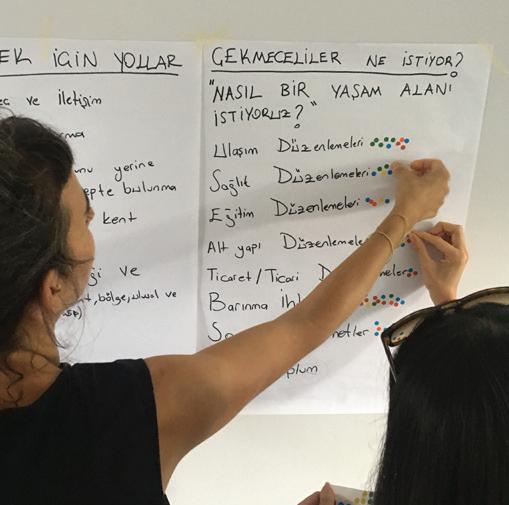 EK İÇİN YOLLAR
ve İletişim
yerine
bulunma
kent
ve
bölge, ulusal ve
ÇEKMECELİLER NE İSTİYOR?
"NASIL BİR YAŞAM ALANI
İSTİYORUZ?"
Ulaşım Düzenlemeleri
Sağlık Düzenlemeleri
Eğitim Düzenlemeleri
Alt yapı Düzenlemele
Ticaret/Ticari D meleri
Barınma İh
So metler
plum